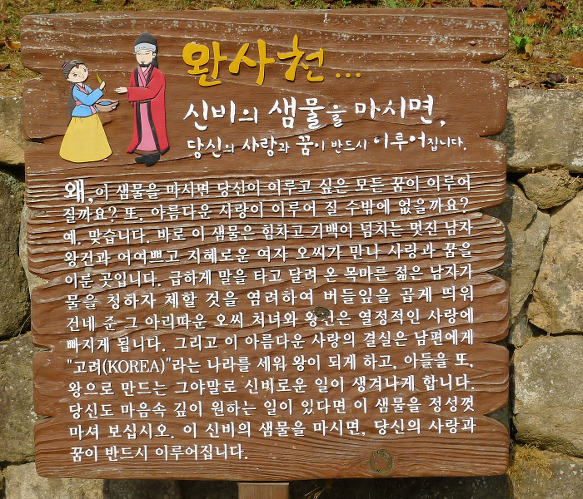 완사천...
신비의 샘물을 마시면,
당신의 사랑과 꿈이 반드시 이루어집니다.
왜, 이 샘물을 마시면 당신이 이루고 싶은 모든 꿈이 이루어
질까요? 또, 아름다운 사랑이 이루어 질 수밖에 없을까요?
예. 맞습니다. 바로 이 샘물은 힘차고 기백이 넘치는 멋진 남자
왕건과 어여쁘고 지혜로운 여자 오씨가 만나 사랑과 꿈을
이룬 곳입니다. 급하게 말을 타고 달려 온 목마른 젊은 남자가
물을 청하자 체할 것을 염려하여 버들잎을 곱게 띄워
건네 준 그 아리따운 오씨 처녀와 왕건은 열정적인 사랑에
빠지게 됩니다. 그리고 이 아름다운 사랑의 결실은 남편에게
"고려(KOREA)"라는 나라를 세워 왕이 되게 하고, 아들을 또,
왕으로 만드는 그야말로 신비로운 일이 생겨나게 합니다.
당신도 마음속 깊이 원하는 일이 있다면 이 샘물을 정성껏
마셔 보십시오. 이 신비의 샘물을 마시면, 당신의 사랑과
꿈이 반드시 이루어집니다.